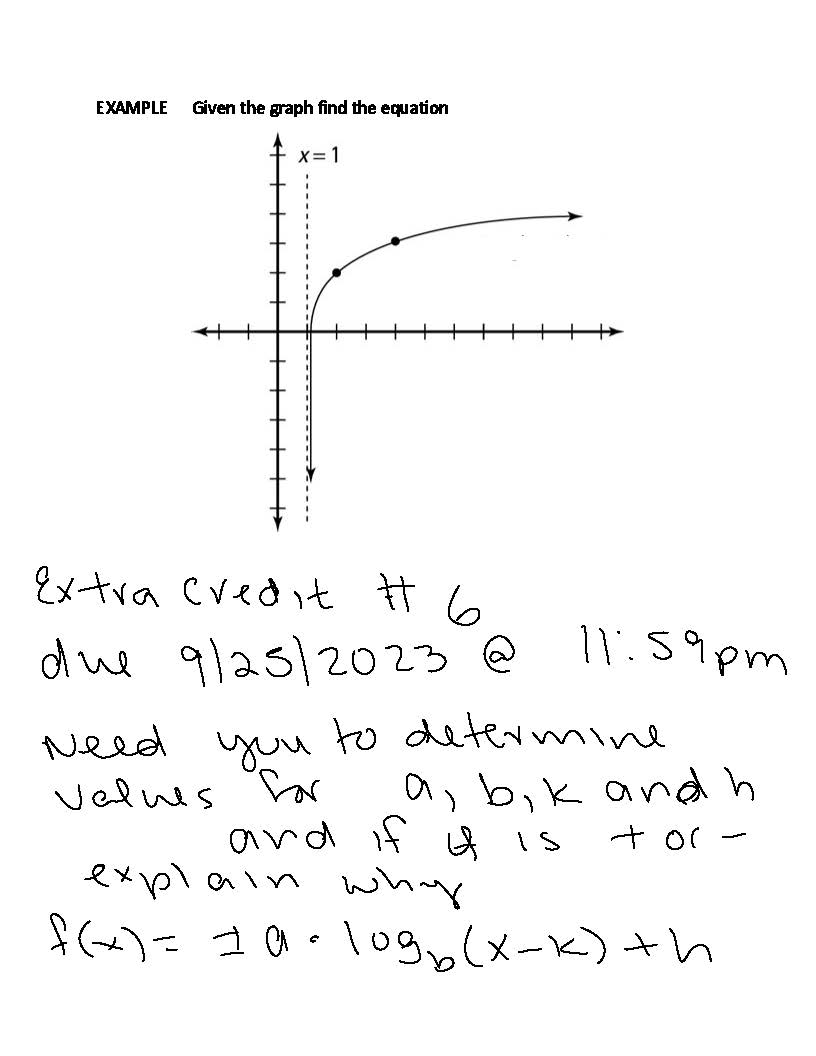 EXAMPLE Given the graph find the equation
x = 1
Extra credit # 6
due 9/25/2023 @ 11:59pm
Need you to determine
values for a, b, k and h
and if it is + or -
explain why
f(x) = ± a · log_b(x-k) + h